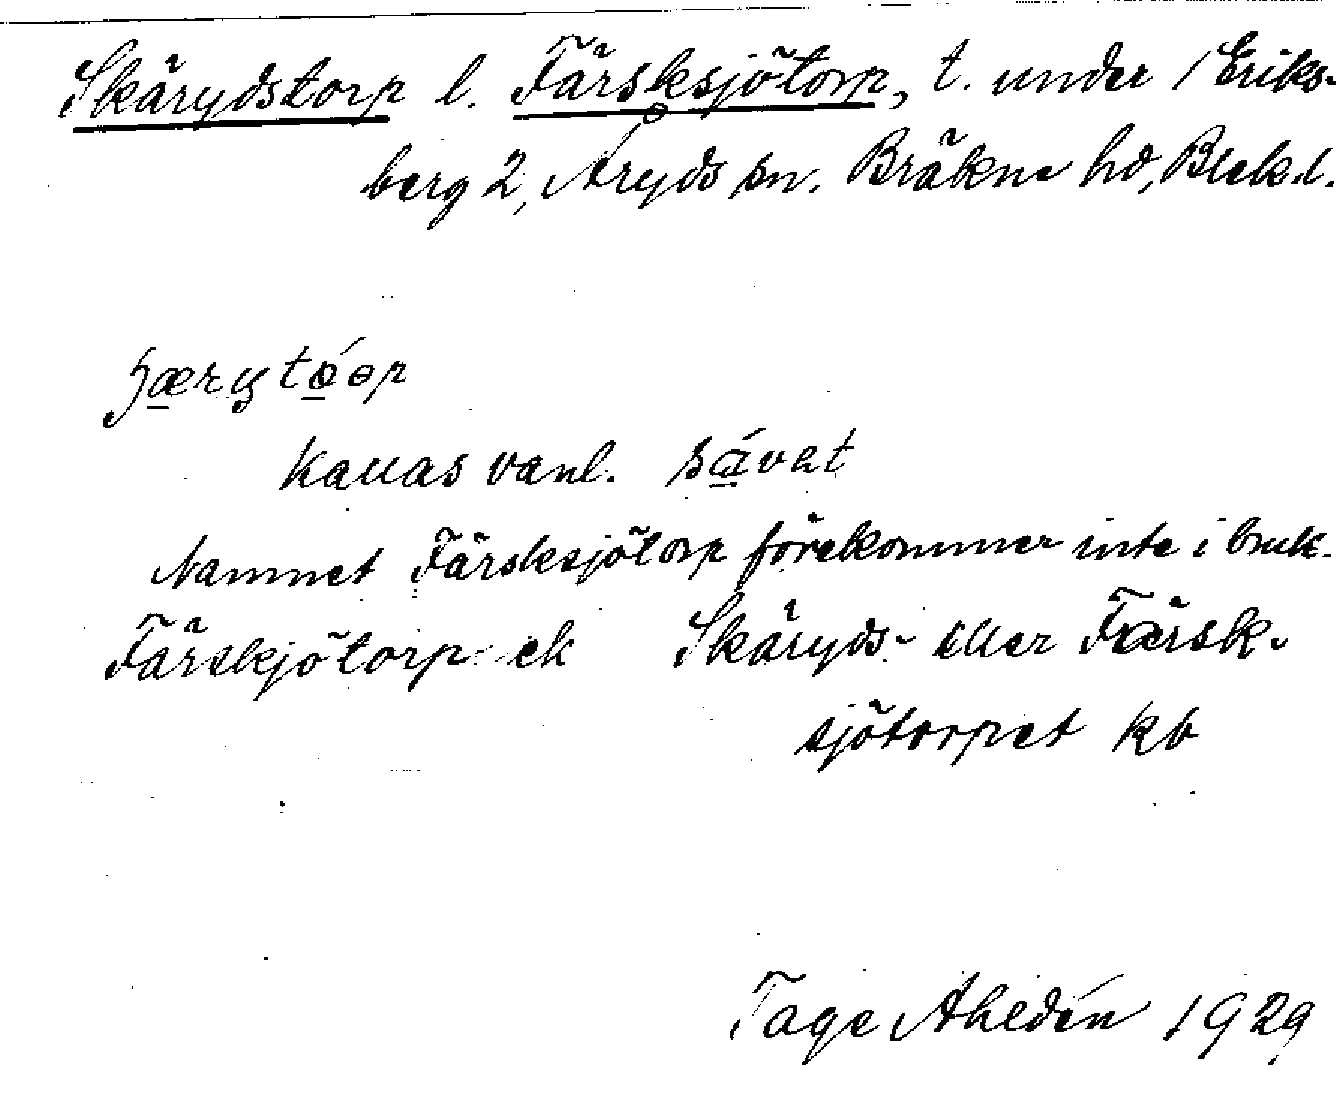 Skärydstorp l. Färsksjötorp, t. under 1 Eriks-
berg 2, Åryds sn. Bräkne hd, Blek.l.
kallas vanl.
Namnet Färsksjötorp förekommer inte i bruk.
Färskjötorp ek Skäryds- eller Färsk-
sjötorpet kb
Tage Ahldén 1929